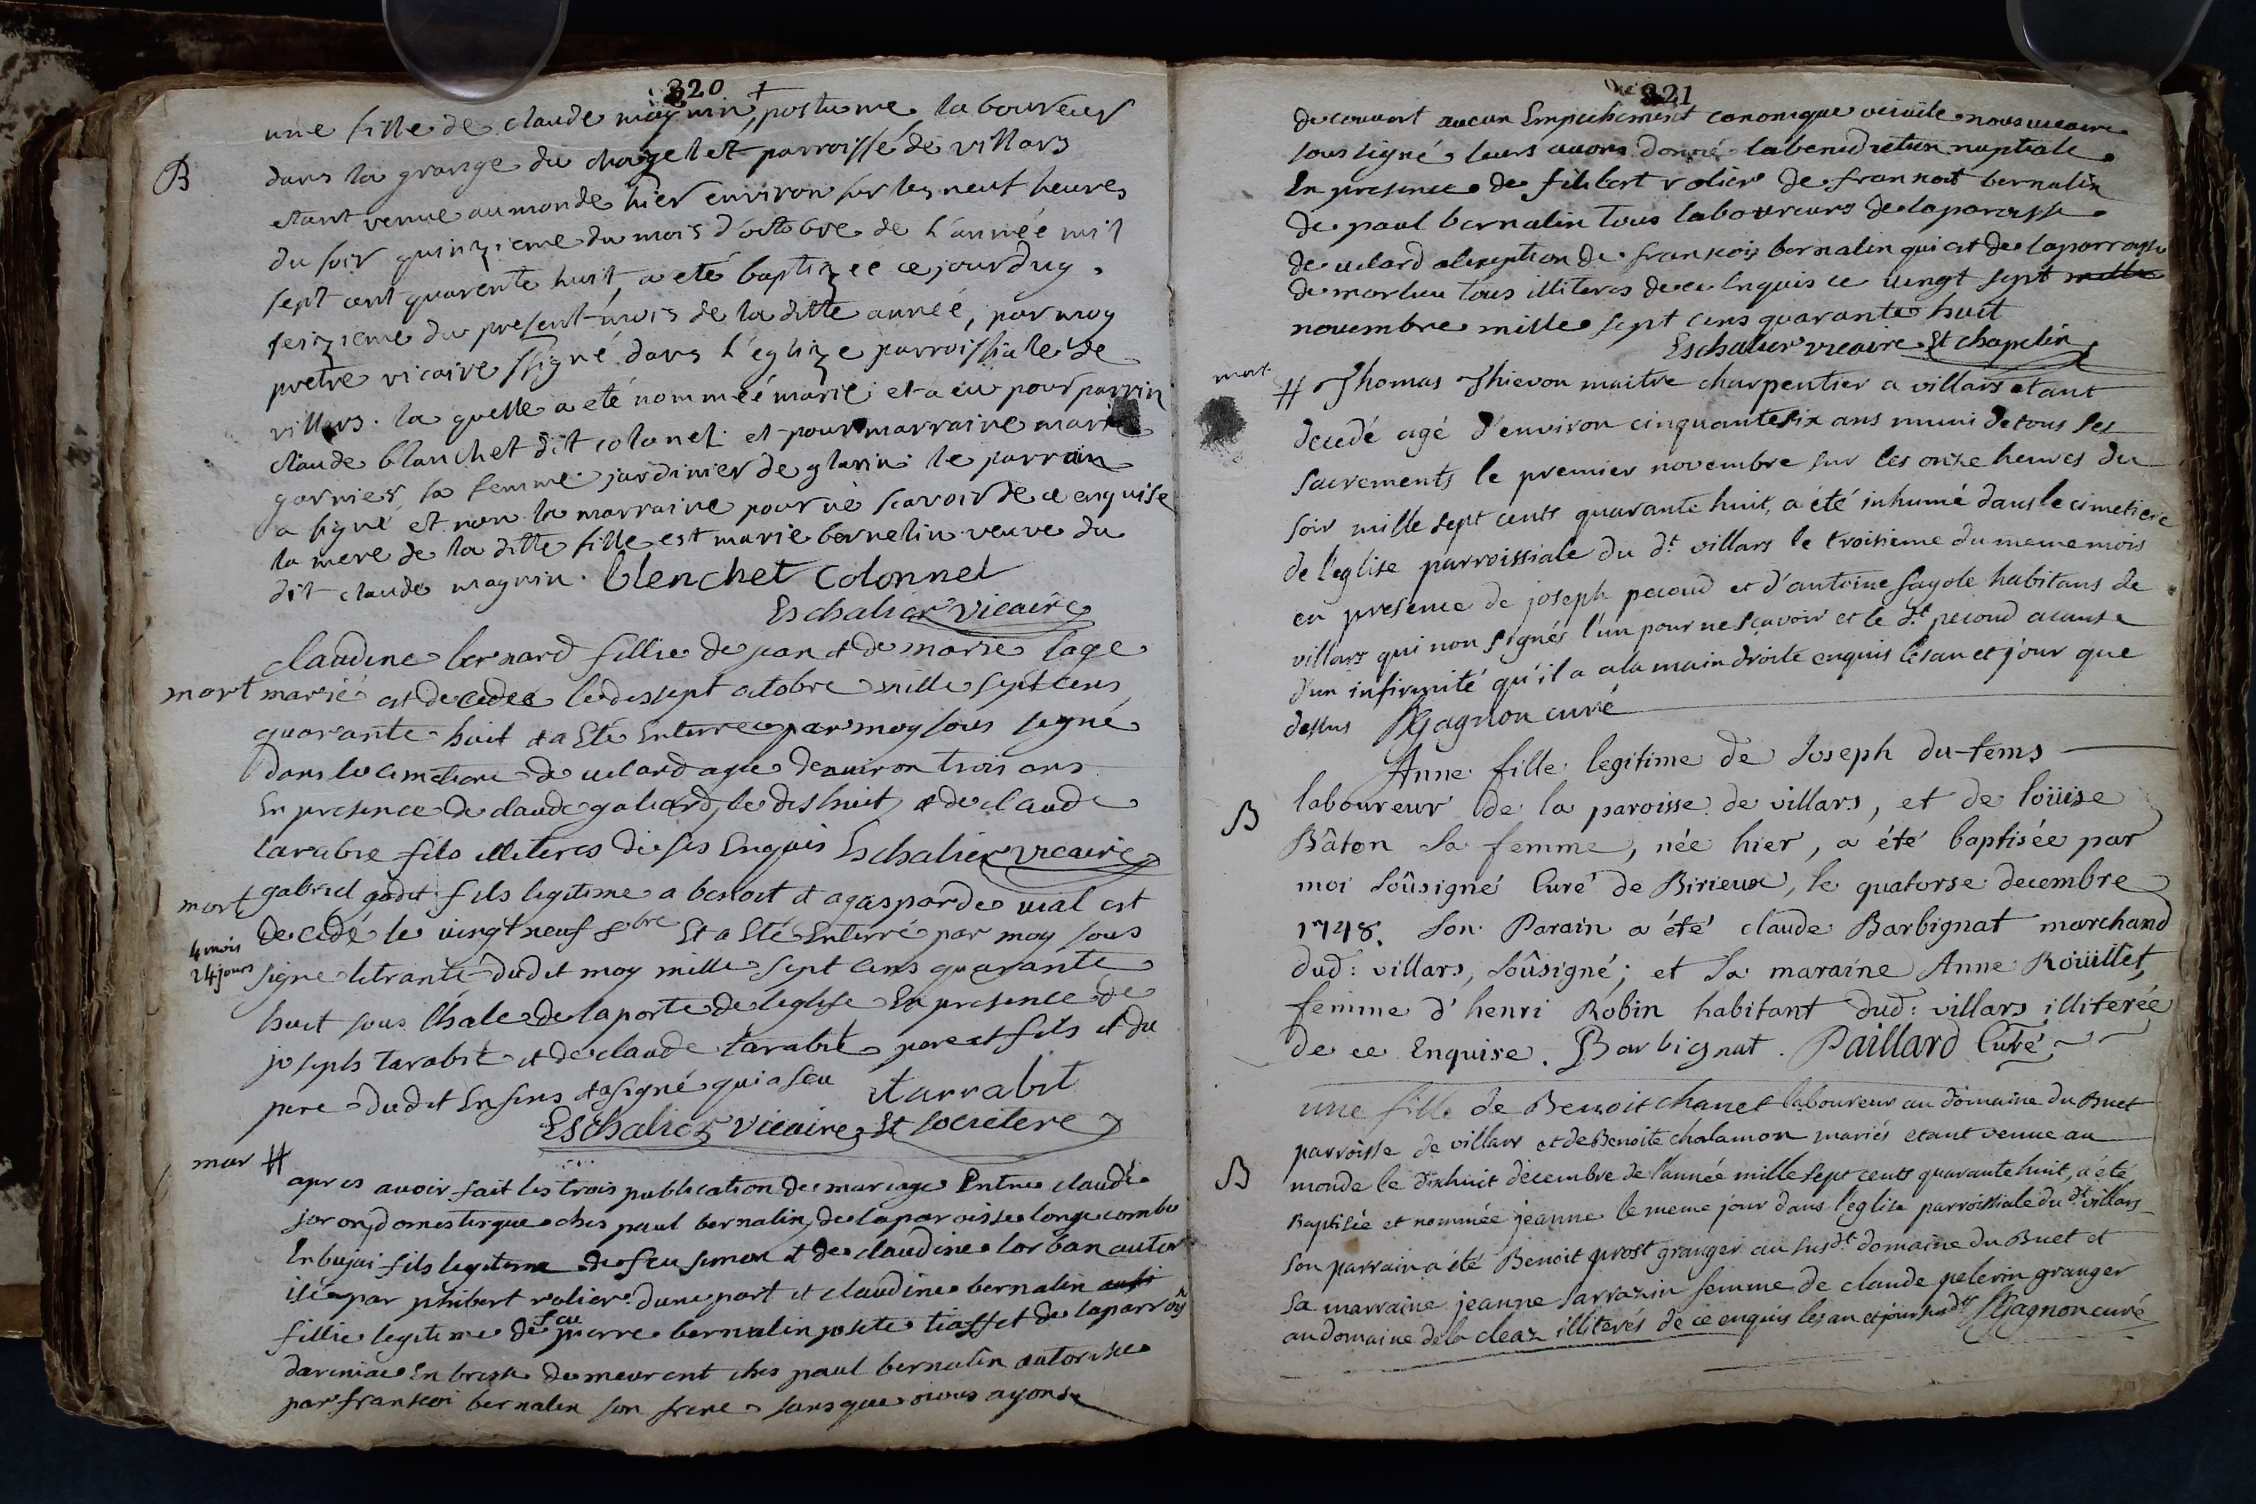 320
une fille de claude magnin + postume laboureur
B
dans la grange du chazelet parroisse de villars
etant venue au monde hier environ sur les neuf heures
du soir quinzieme du mois d'octobre de l'année mil
sept cent quarente huit, a eté baptizee ce jourduy
seizieme du present mois de la ditte année, par moy
pretre vicaire ssigné dans l'eglize parroissiale de
villars. la quelle a eté nommeé marie et a eu pour parrin
claude blanchet dit colonel et pour marraine marie
garnier sa femme jardinier de glarin le parrain
a signé et non la marraine pour ne scavoir de ce enquise
la mere de la ditte fille est marie bernelin veuve du
dit claude magnin. blenchet colonnel
Eschalier vicaire
claudine bernard fillie de jean et de marie sage
mort marié est decedeé le dessept octobre mille sept cens
quarante huit et a Eté Enterreé par moy sous segné
dans le cimetiere de velard ageé denviron trois ans
En presence de claude galiard, le deshuit, et de claude
tarabie fils illiteres de ses Enquis Eschalier vicaire
mort gabriel godet fils legitime a benoit et a gasparde vial est
decedé le vingt neuf 8bre Et a Eté Enterré par moy sous
4 mois
24 jours signe le trante dudit moy mille sept cens quarante
huit sous lhale de la porte de leglise En presence de
joseph tarabit et de claude tarabit pere et fils et du
pere dudit Enfens et a signé qui a seu tarrabit
Eschalier vicaire Et sociétere
mar #
apres avoir fait les trois publication de mariage Entre claude
joron, domestique ches paul bernalin, de la paroisse longecombe
En bujai fils legitime de feu simon et de claudine lorban autor
isé par phibert rolier dune part et claudine bernalin aussi
fillie legitime de feu pierre bernalin josete tiasset de la parrois
darciniac En bresse demeurent ches paul bernalin autorisée
par franscoi bernalin son frere sans que nous ayons
321
decouvert aucun Empechement canonique ni civile nous vicaire
sous signé leurs avons donné la benediction nuptiale
En presence de filibert rolier de fransoit bernalin
de paul bernalin tous laboureurs de la paroisse
de velard alexeption de franscois bernalin qui est de la parroisse
de marlieu tous illiteres de ce Enquis ce vingt sept mille
novembre mille sept cens quarante huit
Eschalier vicaire Et chapelin
mort
# Thomas Thievon maitre charpentier a villars etant
decedé agé d'environ cinquantesix ans muni de tous ses
sacrements le premier novembre sur les onze heures du
soir mille sept cents quarante huit, a été inhumé dans le cimetiere
de l'eglise parroissiale du dt villars le troisieme du meme mois
en presence de joseph pecoud et d'antoine fayole habitans de
villars qui non signés l'un pour ne scavoir et le dt pecoud acause
d'un infirmité qu'il a a la main droite enquis les an et jour que
dessus JGagnon curé
Anne fille legitime de Joseph du-tems
B
laboureur de la paroisse de villars, et de loüise
Bâton sa femme, née hier, a été baptisée par
moi soûsigné Curé de Birieux, le quatorse decembre
1748. Son Parain a été claude Barbignat marchand
dud: villars, soûsigné; et sa maraine Anne Roüillet,
femme d'henri Robin habitant dud: villars illiterée
de ce Enquise. Barbignat. Paillard Curé
une fille de Benoit chanet laboureur au domaine du Buet
parroisse de villars et de Benoite chalamon mariés etant venue au
B
monde le dixhuit decembre de l'année mille sept cents quarante huit, a été
Baptisée et nommée jeanne le meme jour dans l'eglise parroissiale du dt villars
son parrain a été Benoit prost granger au susdt domaine du Buet et
sa marraine jeanne sarrazin femme de claude pelerin granger
au domaine de la cleaz illiterés de ce enquis les an et jour susdts JGagnon curé